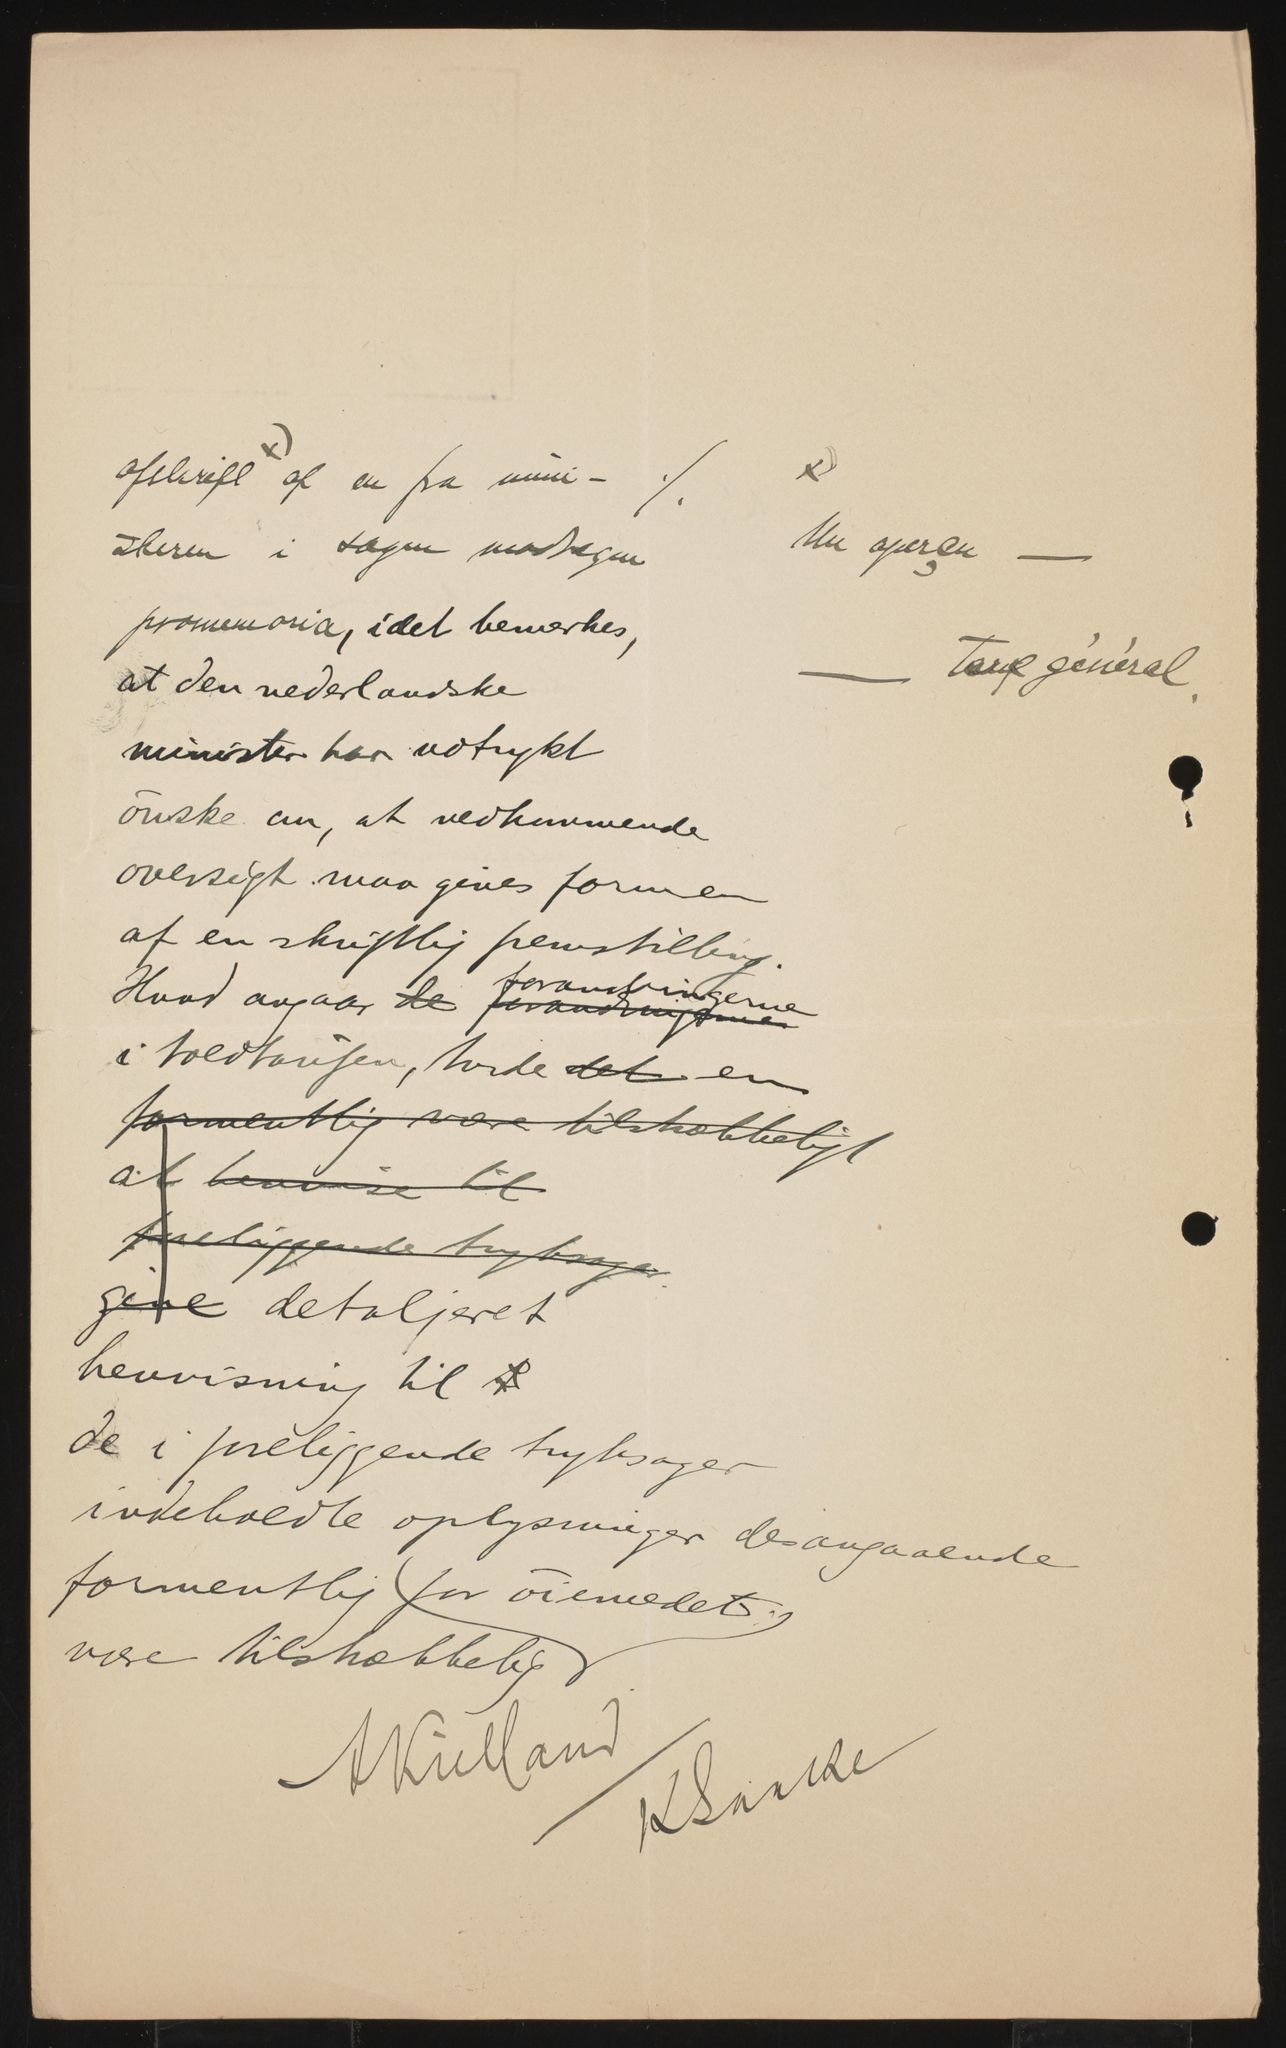 afskrift x) af en fra mini- ./.
steren i sagen modtagen
promemoria, idet bemerkes,
at den nederlandske
minister har udtrykt
önske om, at vedkommende
oversigt maa gives formen
af en skriftlig fremstilling.
Hvad angaar de forandringerne
forandringerne
i toldtarifen, turde det en
formentlig være tilstrækkeligt
at henvise til
foreliggende tryksager
give detaljeret
henvisning til
de i foreliggende tryksager
indeholdte oplysninger desangaaende
formentlig (for öiemedet)
være tilstrækkelig
AKielland
x)
Un aperçu —
— Tarif général.